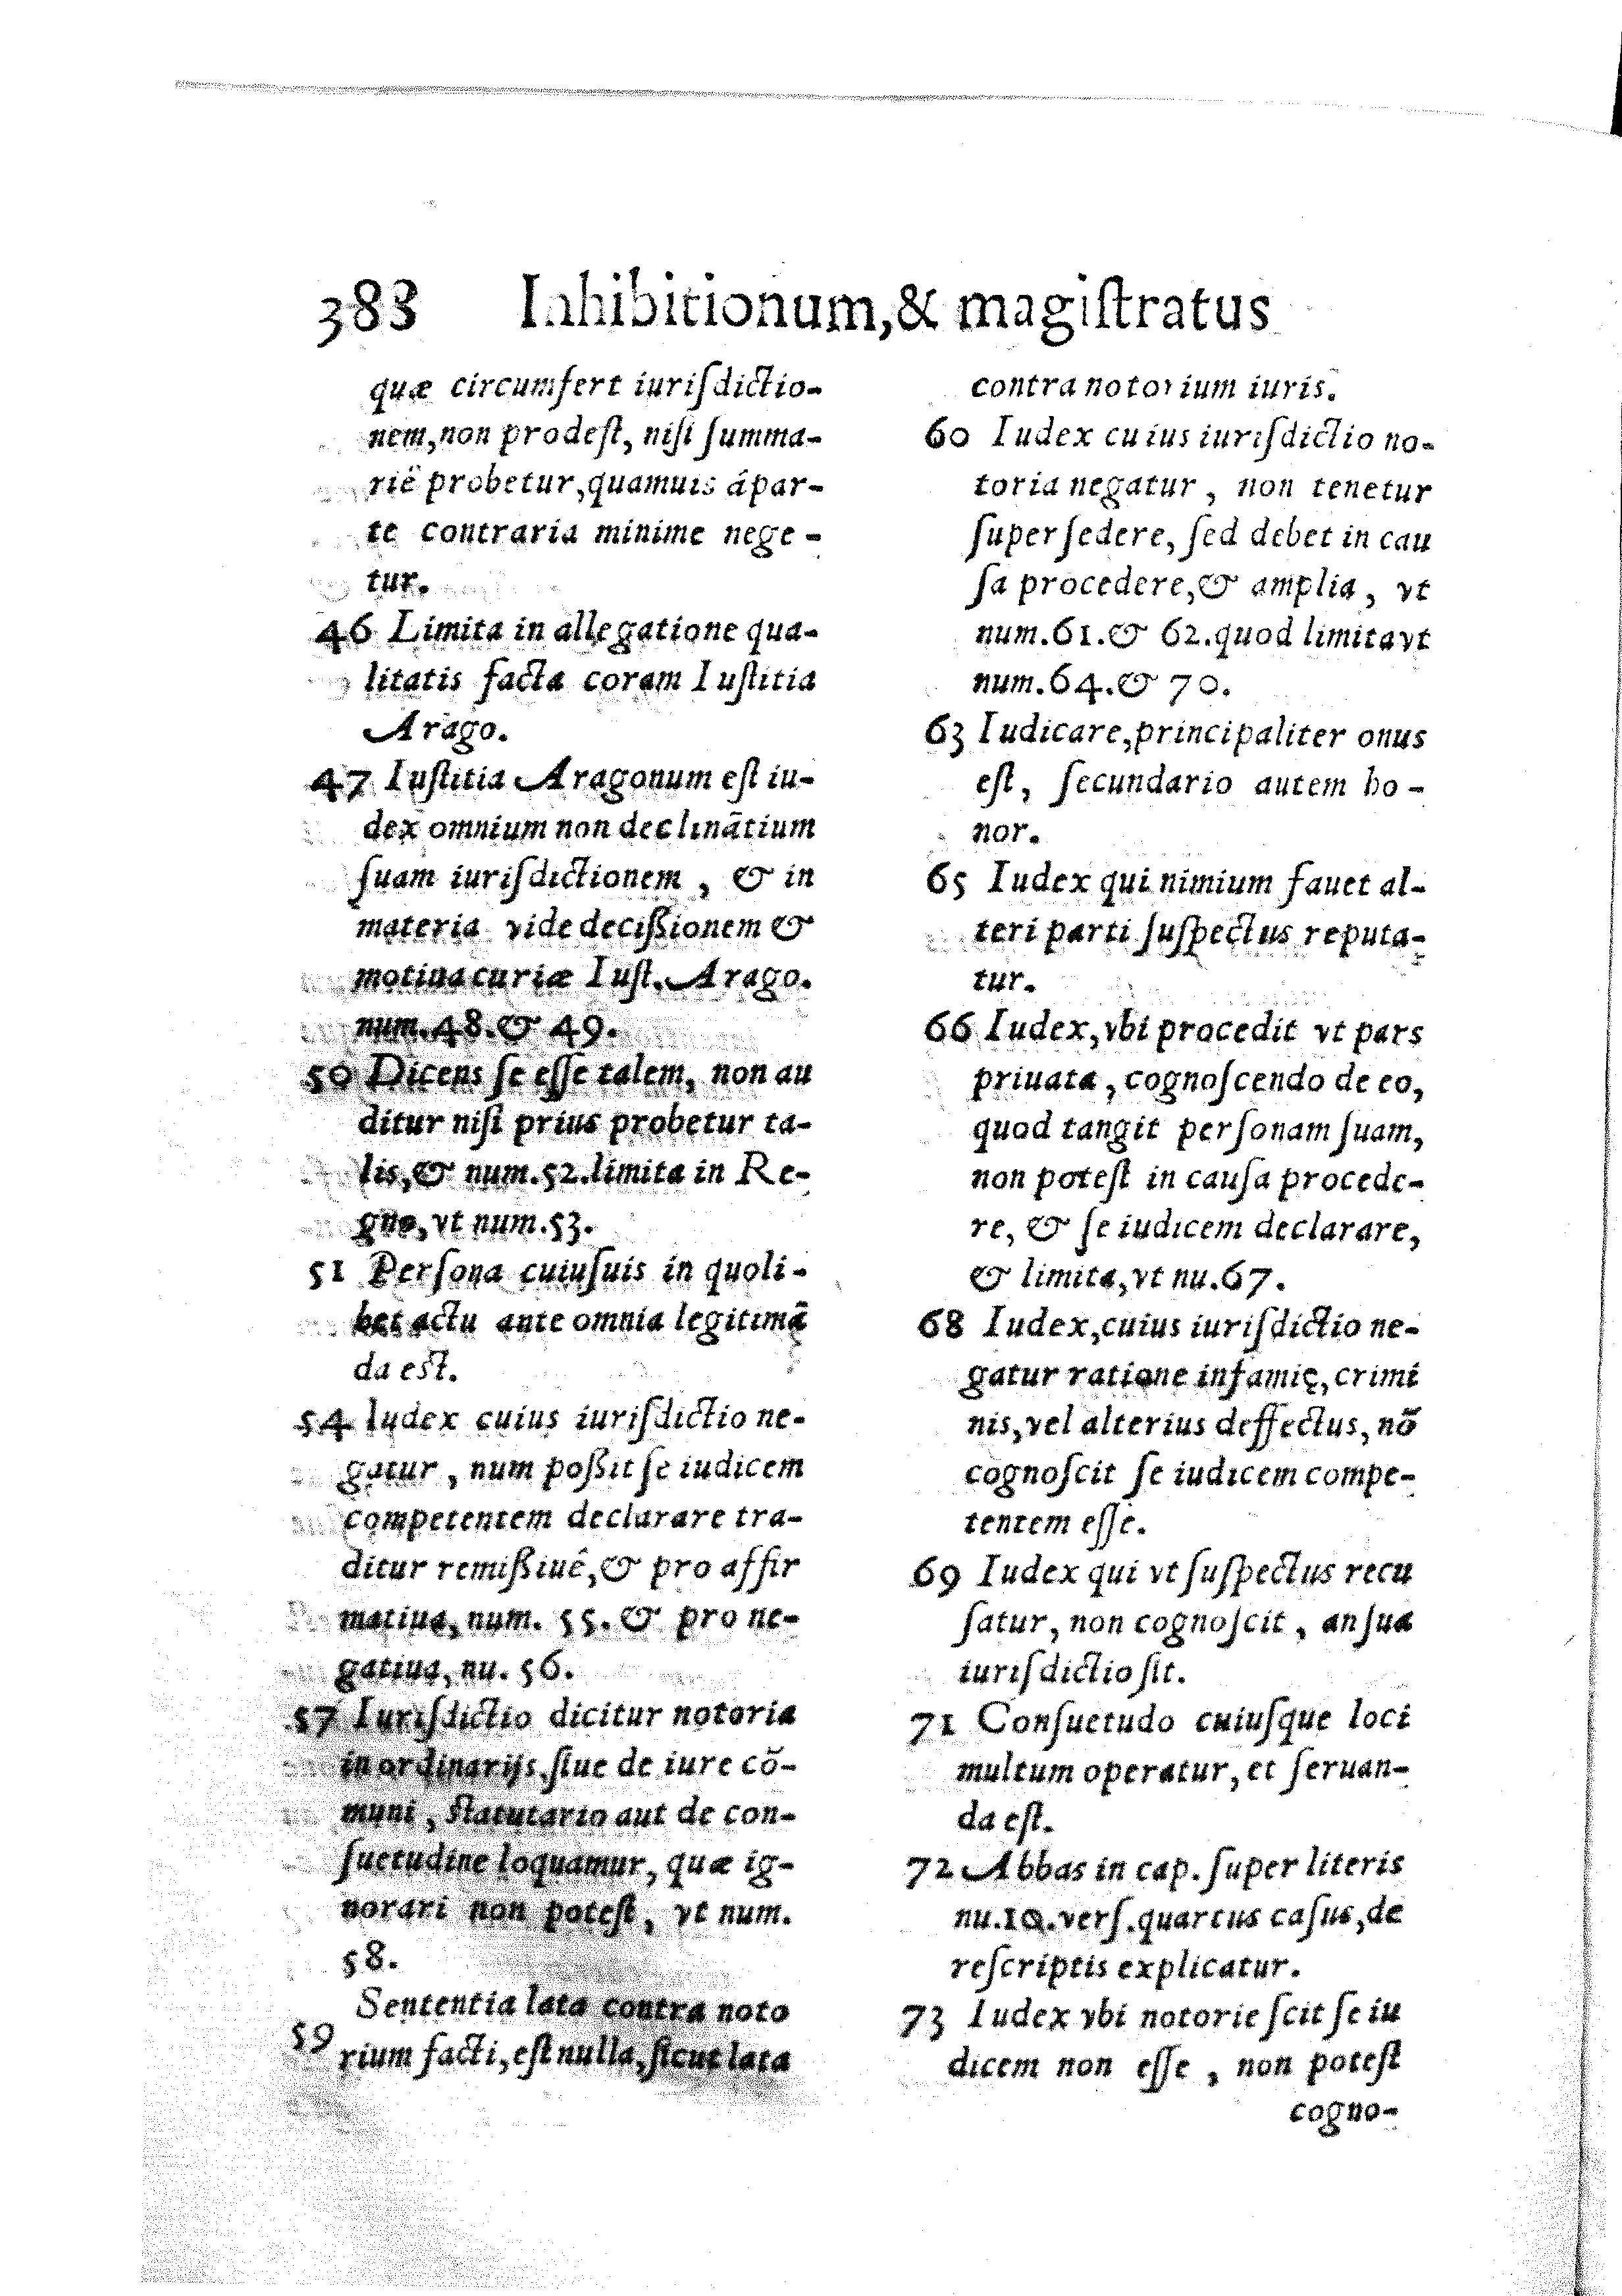 383 Inhibitionum,& magiſtratus
quæ circumfert iuriſdictio-
nem,non prodeſt, niſi ſumma-
riê probetur,quamuis ápar-
te contraria minime nege-
tur.
46 Limita in allegatione qua-
litatis facta coram Iuſtitia
Arago.
47 Iuſtitia Aragonum eſt iu-
dex omnium non declinãtium
ſuam iuriſdictionem, & in
materia vide decißionem &
motiua curiæ Iuſt. Arago.
num.48.& 49.
50 Dicens ſe eſſe talem, non au
ditur niſi prius probetur ta-
lis,& num.52.limita in Re-
gno, vt num.53.
51 Perſona cuiuſuis in quoli-
bet actu ante omnia legitimã
da eſt.
54 Iudex cuius iuriſdictio ne-
gatur, num poßit ſe iudicem
competentem declarare tra-
ditur remißiuê,& pro affir
matiua, num. 55. & pro ne-
gatiua, nu. 56.
57 Iuriſdictio dicitur notoria
in ordinarijs, ſiue de iure cõ-
muni, ſtatutario aut de con-
ſuetudine loquamur, quæ ig-
norari non poteſt, vt num.
58.
59 Sententia lata contra noto
rium facti, eſt nulla, ſicut lata
contra notorium iuris.
60 Iudex cuius iuriſdictio no-
toria negatur, non tenetur
ſuperſedere, ſed debet in cau
ſa procedere,& amplia, vt
num.61.& 62.quod limita vt
num.64.& 70.
63 Iudicare,principaliter onus
eſt, ſecundario autem ho-
nor.
65 Iudex qui nimium fauet al-
teri parti ſuſpectus reputa-
tur.
66 Iudex,vbi procedit vt pars
priuata, cognoſcendo de eo,
quod tangit perſonam ſuam,
non poteſt in cauſa procede-
re, & ſe iudicem declarare,
& limita, vt nu.67.
68 Iudex,cuius iuriſdictio ne-
gatur ratione infamię, crimi
nis, vel alterius deffectus, nõ
cognoſcit ſe iudicem compe-
tentem eſſe.
69 Iudex qui vt ſuſpectus recu
ſatur, non cognoſcit, an ſua
iuriſdictio ſit.
71 Conſuetudo cuiuſque loci
multum operatur, et ſeruan-
da eſt.
72 Abbas in cap. ſuper literis
nu.10.verſ.quartus caſus,de
reſcriptis explicatur.
73 Iudex vbi notorie ſcit ſe iu
dicem non eſſe, non poteſt
cogno-